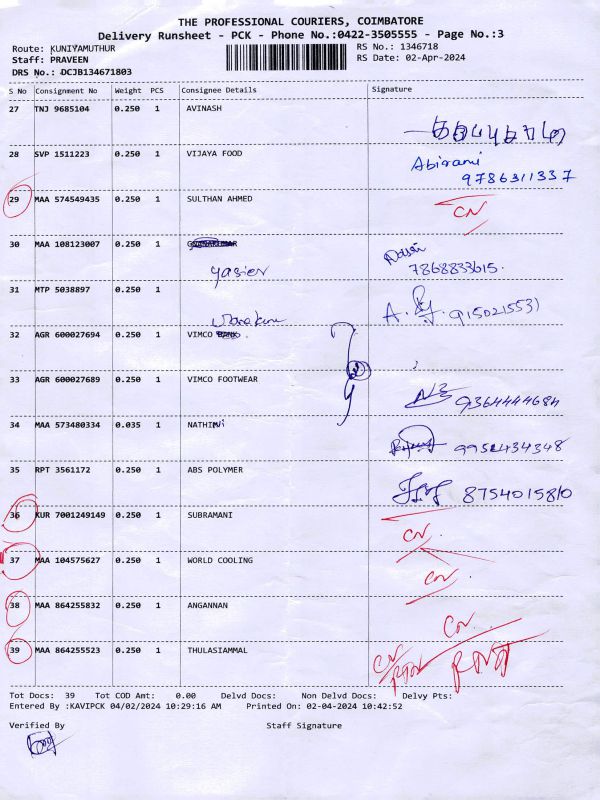 THE PROFESSIONAL COURIERS, COIMBATORE
Delivery Runsheet - PCK - Phone No.:0422-3505555 - Page No.:3
Route: KUNIYAMUTHUR RS No.: 1346718
Staff: PRAVEEN RS Date: 02-Apr-2024
DRS No.: DCJB134671803
S No Consignment No Weight PCS Consignee Details Signature
27 TNJ 9685104 0.250 1 AVINASH
28 SVP 1511223 0.250 1 VIJAYA FOOD Abirami
9786311337
29 MAA 574549435 0.250 1 SULTHAN AHMED CN
30 MAA 108123007 0.250 1
Yasier 7868833615.
31 MTP 5038897 0.250 1 A. 9150215531
32 AGR 600027694 0.250 1 VIMCO BANK
33 AGR 600027689 0.250 1 VIMCO FOOTWEAR 9364444684
34 MAA 573480334 0.035 1 NATHINI
35 RPT 3561172 0.250 1 ABS POLYMER 8754015810
36 KUR 7001249149 0.250 1 SUBRAMANI CN
37 MAA 104575627 0.250 1 WORLD COOLING CN
38 MAA 864255832 0.250 1 ANGANNAN CN
39 MAA 864255523 0.250 1 THULASIAMMAL CN
Tot Docs: 39 Tot COD Amt: 0.00 Delvd Docs: Non Delvd Docs: Delvy Pts:
Entered By :KAVIPCK 04/02/2024 10:29:16 AM Printed On: 02-04-2024 10:42:52
Verified By Staff Signature